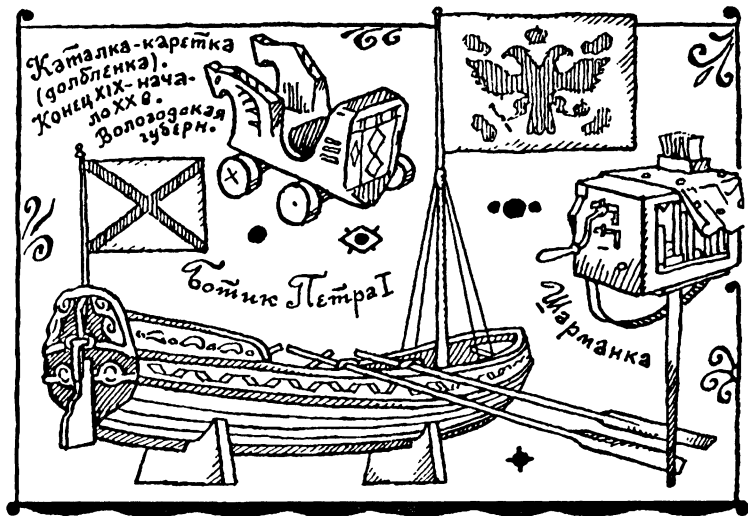 Каталка-каретка
(долбленка).
Конец XIX-нача-
ло XX в.
Вологодская
губерн.
Ботик Петра I
Шарманка